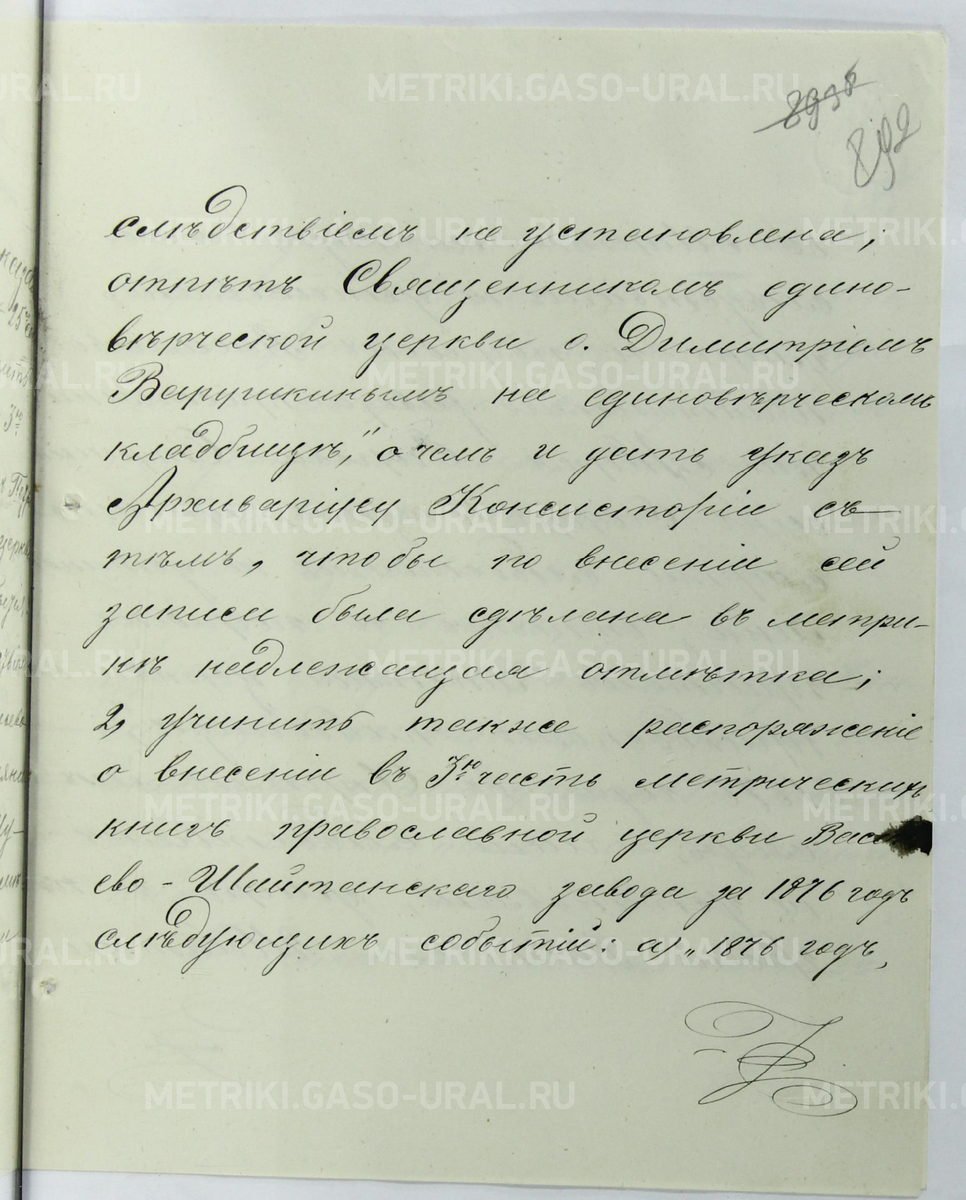 892
слѣдствіемъ не установлена;
отпѣтъ Священникомъ едино-
вѣрческой церкви о. Димитріемъ
Варушкинымъ на единовѣрческомъ
кладбищѣ", о чемъ и дать указъ
Архиваріусу Консисторіи съ
тѣмъ, чтобы по внесеніи сей
записи была сдѣлана въ метри-
кѣ надлежащая отмѣтка;
2, учинить также распоряженіе
о внесеніи въ 3ю часть метрическихъ
книгъ православной церкви Васил
ево-Шайтанскаго завода за 1876 годъ
слѣдующихъ событій: а) „1876 годъ,
METRIKI.GASO-URAL.RU